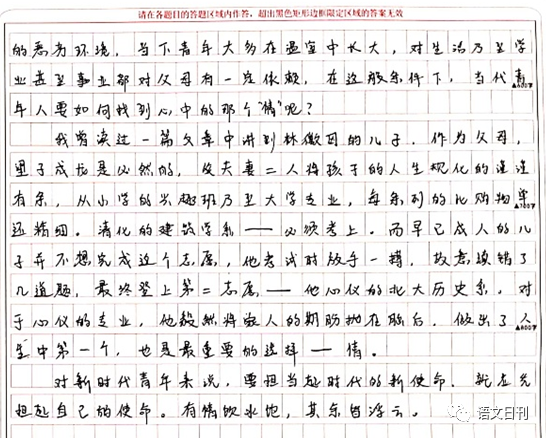 请在各题目的答题区域内作答，超出黑色矩形边框限定区域的答案无效
的恶劣环境，当下青年大多在温室中长大，对生活乃至学
业甚至事业都对父母有一定依赖，在这般条件下，当代青
▲600字
年人要如何找到心中的那个"情"呢？
我曾读过一篇文章中讲到林徽因的儿子。作为父母，
望子成龙是必然的，夫妻二人将孩子的人生规化的
有余，从小学的兴趣班乃至大学专业，每条列的比购物单
▲700字
还精细。清化的建筑学系——必须考上。而早已成人的儿
子并不想完成这个志愿，他考试时放手一搏，故意填错了
几道题，最终登上第二志愿——他心仪的北大历史系，对
于心仪的专业，他毅然将家人的期盼抛在脑后，做出了人
▲800字
生中第一个，也是最重要的选择——情。
对新时代青年来说，要担当起时代的新使命，就应先
担起自己的使命。有情饮水饱，其余皆浮云。
语文日刊